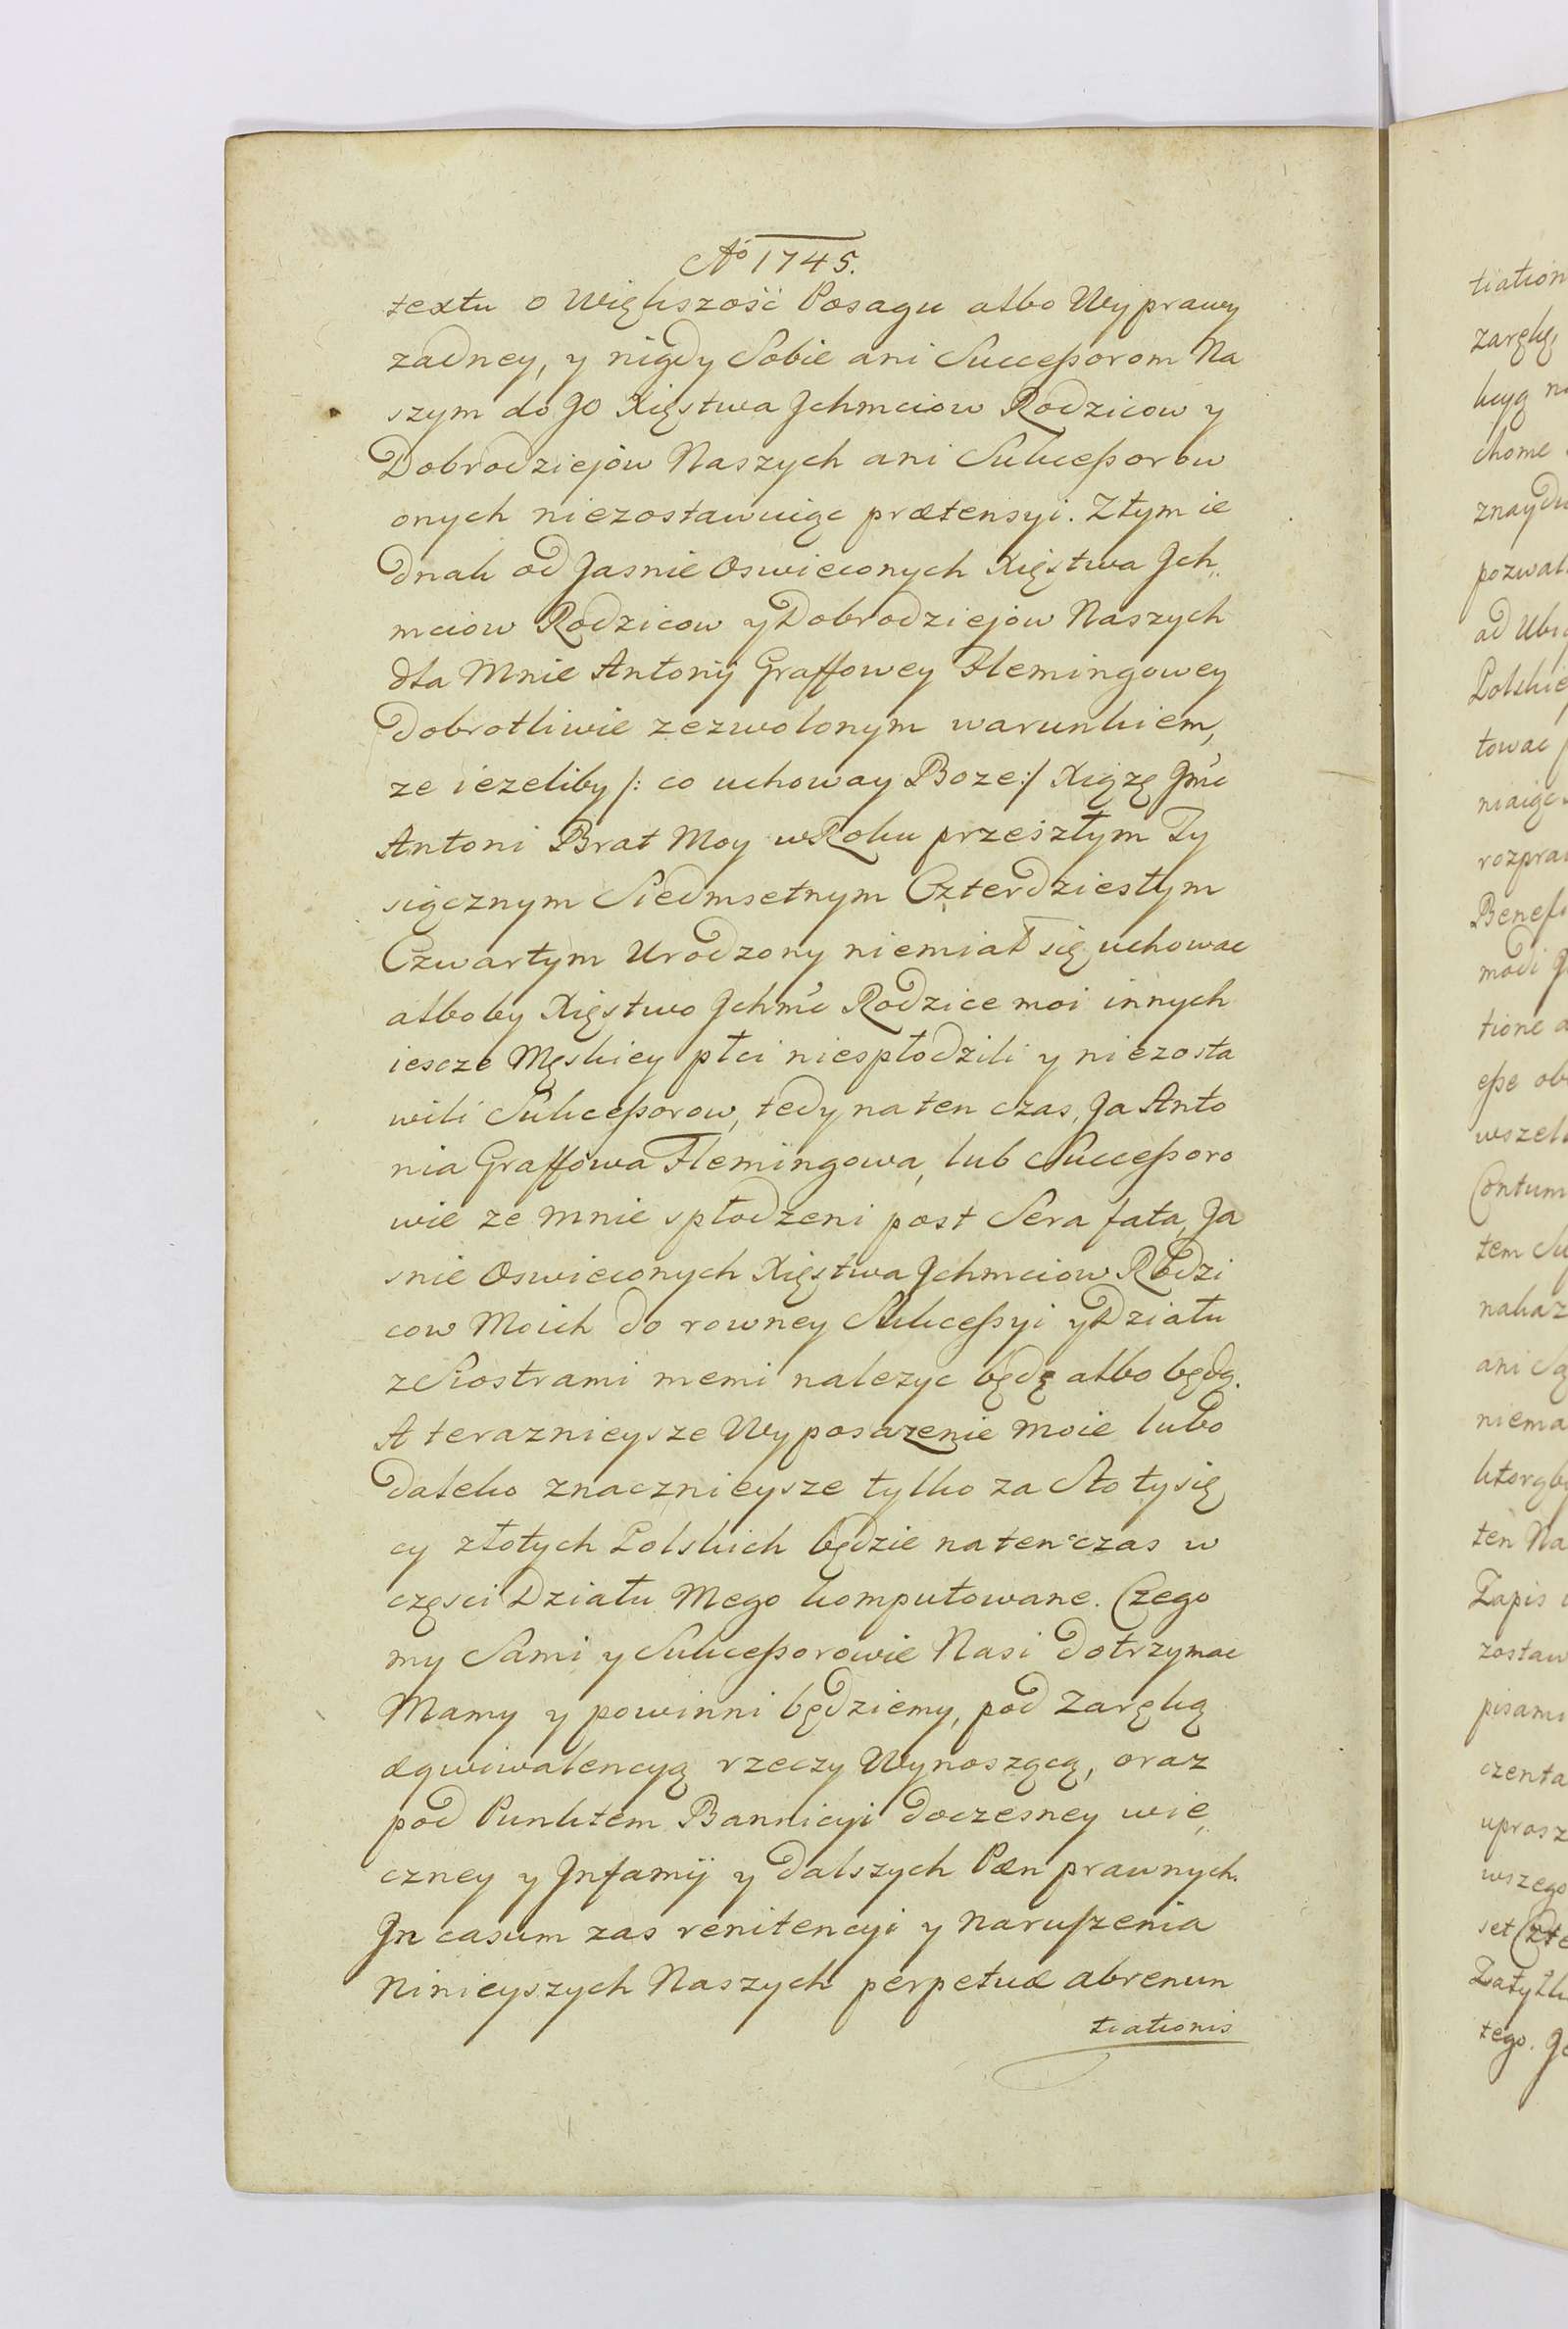 Aº 1745.
textu o Większość Posagu albo Wyprawy
zadney, y nigdy Sobie ani Succeßorom Na
szym do JO Xięstwa Jchmciow Rodzicow y
Dobrodziejow Naszych ani Sukceßorow
onych niezostawuiąc prætensyi. Ztym ie
dnak od Jasnie Oswieconych Xięstwa Jch„
mciow Rodzicow y Dobrodziejow Naszych
dla Mnie Antonij Graffowey Flemingowey
Dobrotliwie zezwolonym warunkiem,
ze iezeliby /: co uchoway Boze:/ Xiązę Jm̃c
Antoni Brat Moy w Roku przeszłym Ty
siącznym Siedmsetnym Czterdziestym
Czwartym Urodzony niemiał się uchowac
alboby Xięstwo Jchm̃c Rodzice moi innych
iescze Męskiey płci niespłodzili y niezosta
wili Sukceßorow, tedy na ten czas, Ja Anto
nia Graffowa Flemingowa, lub Succeßoro
wie ze mnie spłodzeni post Sera fata, Ja
snie Oswieconych Xięstwa Jchmciow Rodzi
cow Moich do rowney Sukceßyi y Działu
z Siostrami memi nalezyc będę albo będą.
A teraznieysze Wyposazenie moie lubo
daleko znacznieysze tylko za Sto tysię
cy złotych Polskich będzie na ten czas w
częsci Działu Mego komputowane. Czego
my Sami y Sukceßorowie Nasi dotrzymac
Mamy y powinni będziemy, pod Zaręką
æqwiwalencyą rzeczy Wynoszącą, oraz
pod Punktem Bannicyi doczesney wie„
czney y Jnfamij y dalszych Pæn prawnych.
Jn casum zas renitencyi y Narußzenia
Ninieyszych Naszych perpetuæ abrenun
tiationis
tiation
zaręką,
kcyą
chome
pozwal
ad
Polskie
towac
niaiąc
rozpraw
Benefi
modi
tione
eße
wszel
Contum
tem
nakaz
ani
niema
ktorąby
ten Na
Zapis
zostaw
pisami
czenta
uprosz
wszego
set Czte
tego.